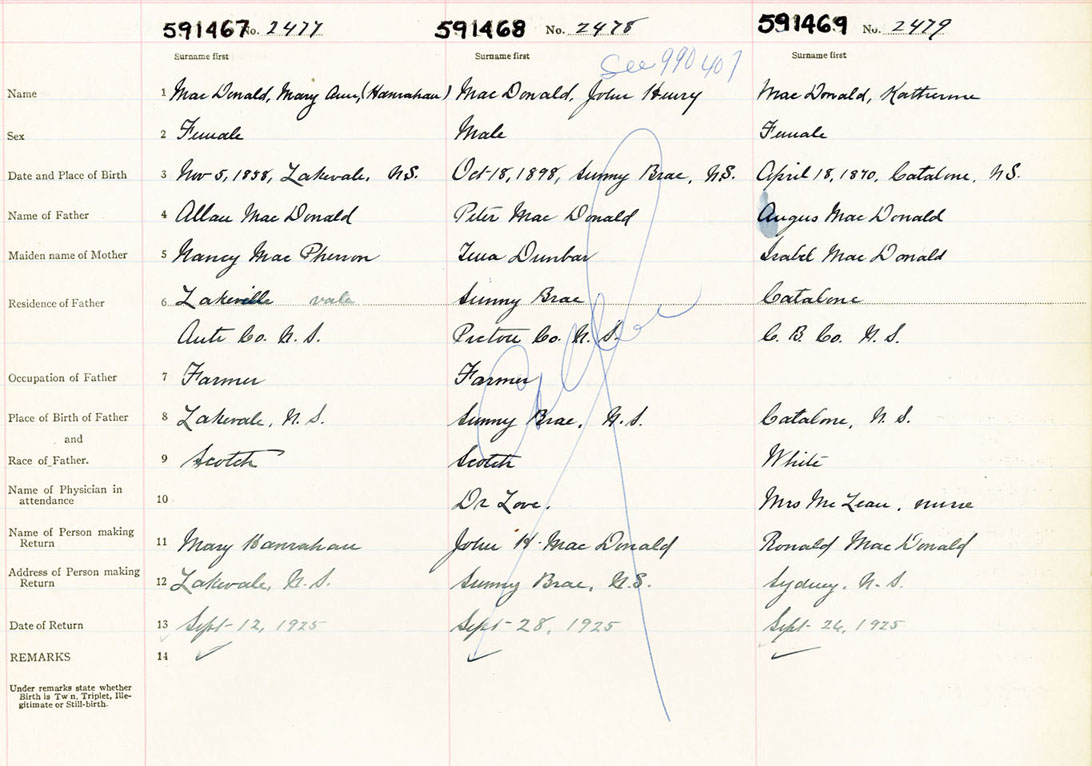 591467 No. 2477 591468 No. 2478 591469 No. 2479
Surname first Surname first Surname first
See 990407
Name 1 Mac Donald, Mary Ann, (Hanrahan) Mac Donald, John Henry Mac Donald, Katherine
Sex 2 Female Male Female
Date and Place of Birth 3 Nov 5, 1858, Lakevale, N.S. Oct 18, 1898, Sunny Brae, N.S. April 18, 1870, Catalone, N.S.
Name of Father 4 Allan Mac Donald Peter Mac Donald Angus Mac Donald
Maiden name of Mother 5 Nancy Mac Pherson Dunbar Isabel Mac Donald
Residence of Father 6 Lakeville vale Sunny Brae Catalone
Ant. Co. N.S. Pictou Co. N.S. C. B. Co. N.S.
Occupation of Father 7 Farmer Farmer
Place of Birth of Father 8 Lakevale, N.S. Sunny Brae, N.S. Catalone, N.S.
and
Race of Father. 9 Scotch Scotch White
Name of Physician in
attendance 10 Dr Love. Mrs McLean, nurse
Name of Person making
Return 11 Mary Hanrahan John H. Mac Donald Ronald Mac Donald
Address of Person making
Return 12 Lakevale, N.S. Sunny Brae, N.S. Sydney, N.S.
Date of Return 13 Sept 12, 1925 Sept 28, 1925 Sept 26, 1925
REMARKS 14
Under remarks state whether
Birth is Twin, Triplet, Ille-
gitimate or Still-birth.